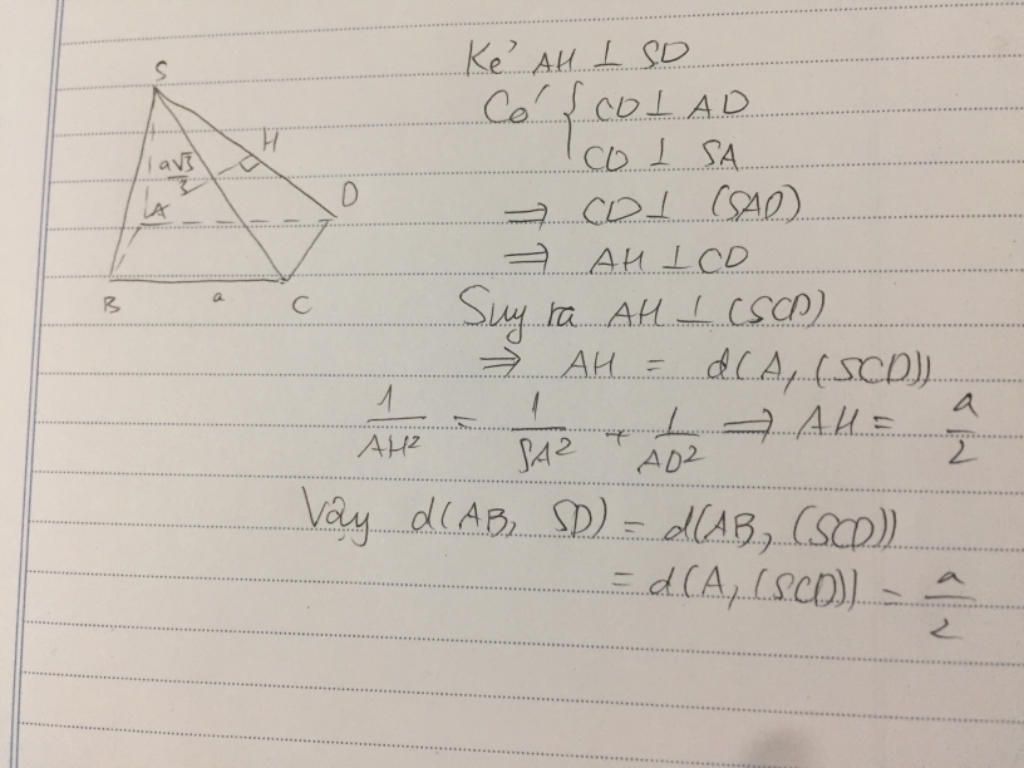 S
H
a√3/3
D
A
B a C
Kẻ AH ⊥ SD
Có { CD ⊥ AD
CD ⊥ SA
⇒ CD ⊥ (SAD)
⇒ AH ⊥ CD
Suy ra AH ⊥ (SCD)
⇒ AH = d(A, (SCD))
1/AH² = 1/SA² + 1/AD² ⇒ AH = a/2
Vậy d(AB, SD) = d(AB, (SCD))
= d(A, (SCD)) = a/2